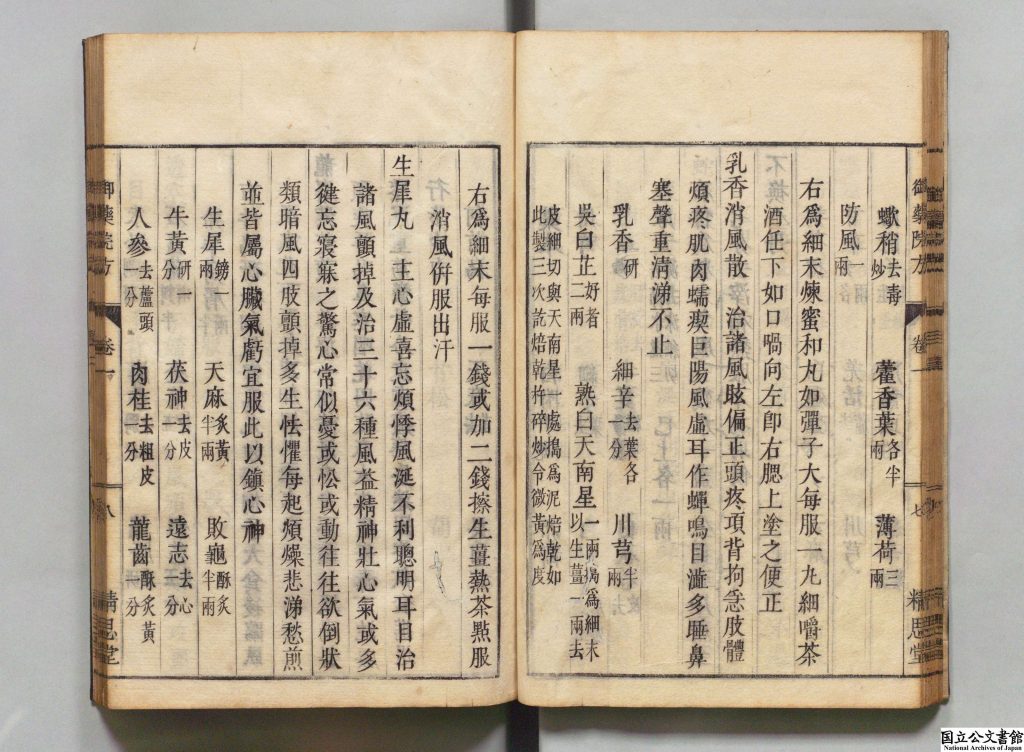 御藥院方 卷一 七 精思堂
蠍稍去毒炒 藿香葉各半兩 薄荷三兩
防風一兩
右爲細末煉蜜和丸如彈子大每服一丸細嚼茶
酒任下如口喎向左卽右腮上塗之便正
乳香消風散 治諸風眩偏正頭疼項背拘急肢體
煩疼肌肉蠕瘈巨陽風虛耳作蟬鳴目澁多睡鼻
塞聲重淸涕不止
乳香研 細辛去葉各一分 川芎半兩
吳白芷好者二兩 熟白天南星一兩搗爲細末以生薑一兩去
皮細切與天南星一處搗爲泥焙乾如
此製三次訖焙乾杵碎炒令微黃爲度
右爲細末每服一錢或加二錢擦生薑熱茶點服
消風併服出汗
生犀丸 主心虛喜忘煩悸風涎不利聰明耳目治
諸風顫掉及治三十六種風益精神壯心氣或多
健忘寢寐之驚心常似憂或忪或動往往欲倒狀
類暗風四肢顫掉多生怯懼每起煩燥悲涕愁煎
並皆屬心臟氣虧宜服此以鎮心神
生犀鎊一兩 天麻炙黃半兩 敗龜酥炙半兩
牛黃研一分 茯神去皮一分 遠志去心一分
人參去蘆頭一分 肉桂去粗皮一分 龍齒酥炙黃一分
御藥院方 卷一 八 精思堂
国立公文書館
National Archives of Japan